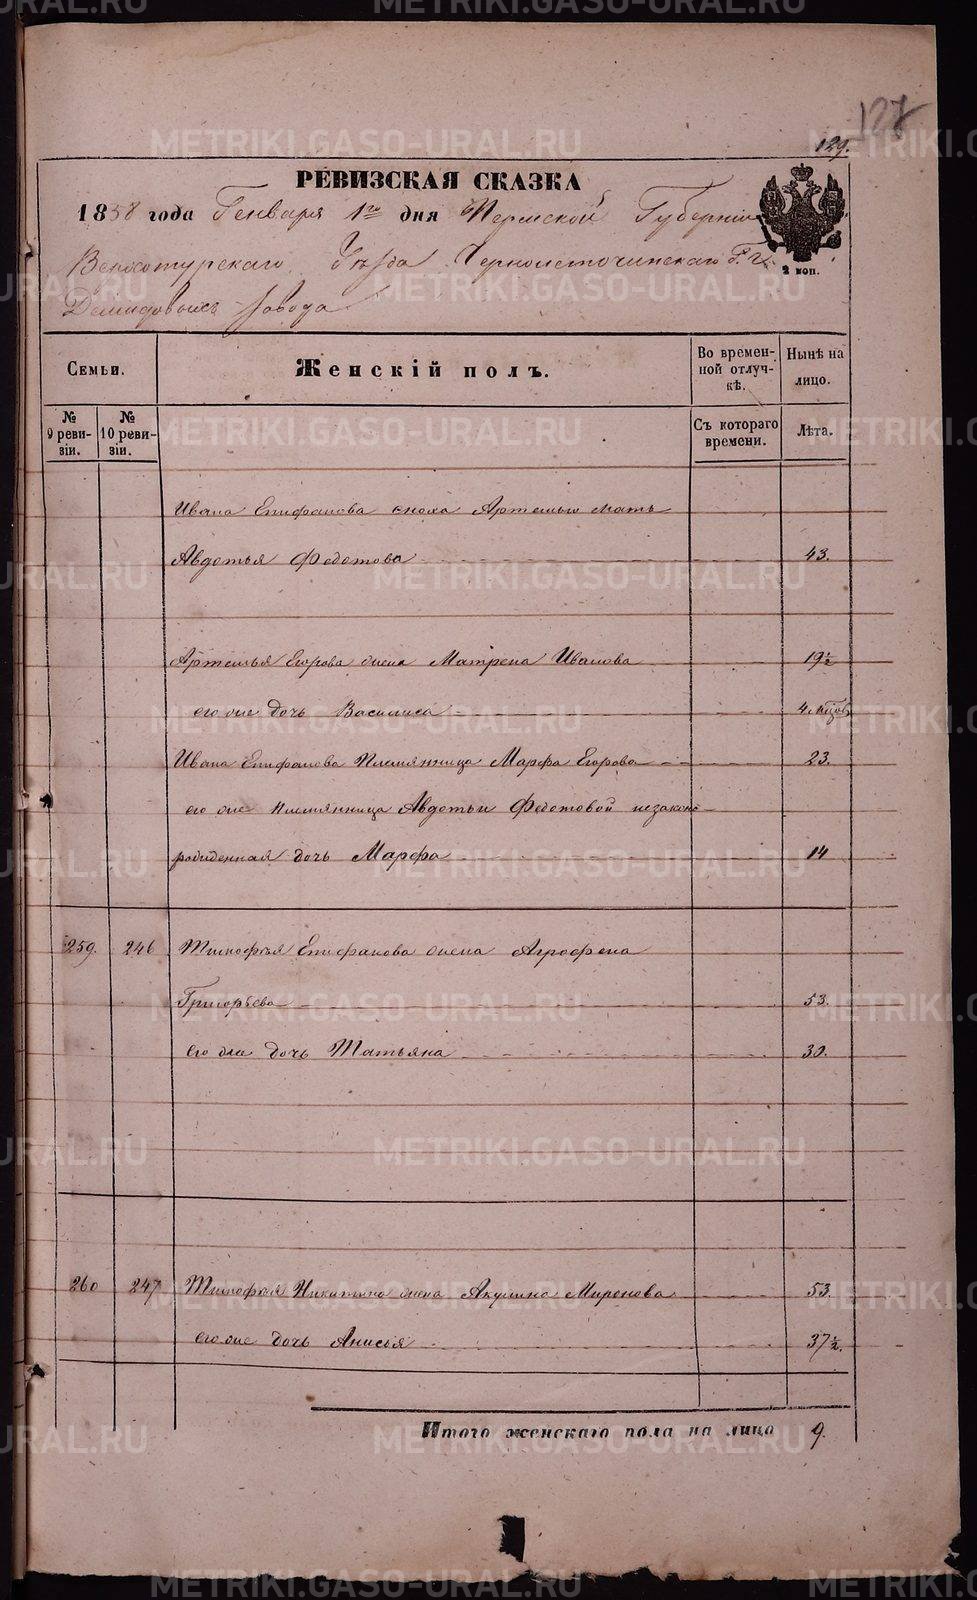 127
129.
РЕВИЗСКАЯ СКАЗКА
1858 года Генваря 1го дня Пермской Губерніи
Верхотурскаго Уѣзда Черноисточинскаго Г. г.
Демидовыхъ завода
2 коп.
Семьи.
Женскій полъ.
Во времен-
ной отлуч-
кѣ.
Нынѣ на
лицо.
№
9 реви-
зіи.
№
10 реви-
зіи.
Съ котораго
времени.
Лѣта.
Ивана Епифанова сноха Артемью мать
Авдотья Федотова 43.
Артемья Егорова жена Матрена Иванова 19½
его же дочь Василиса 4 мцов
Ивана Епифанова Племянница Марфа Егорова 23.
его же племянница Авдотьи Федотовой незаконо
рожденная дочь Марфа 14
259. 246 Тимофѣя Епифанова жена Агрофена
Григорьева 53.
его же дочь Татьяна 30.
260 247 Тимофѣя Никитина жена Акулина Миронова 53.
его же дочь Анисья 37½.
Итого женскаго пола на лицо 9.
METRIKI.GASO-URAL.RU